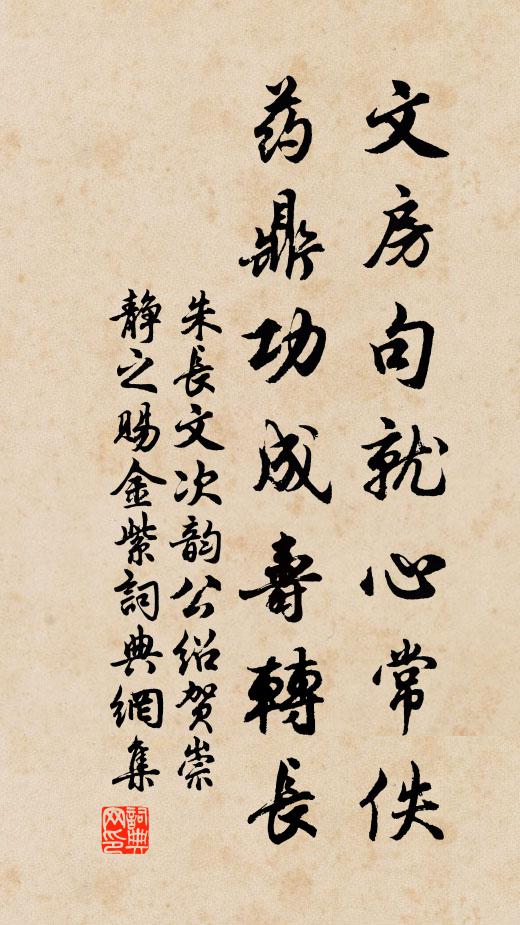 文房句就心常佚
药鼎功成壽轉長
朱長文次韵公绍贺崇
静之赐金紫詞典網集
詞典网印